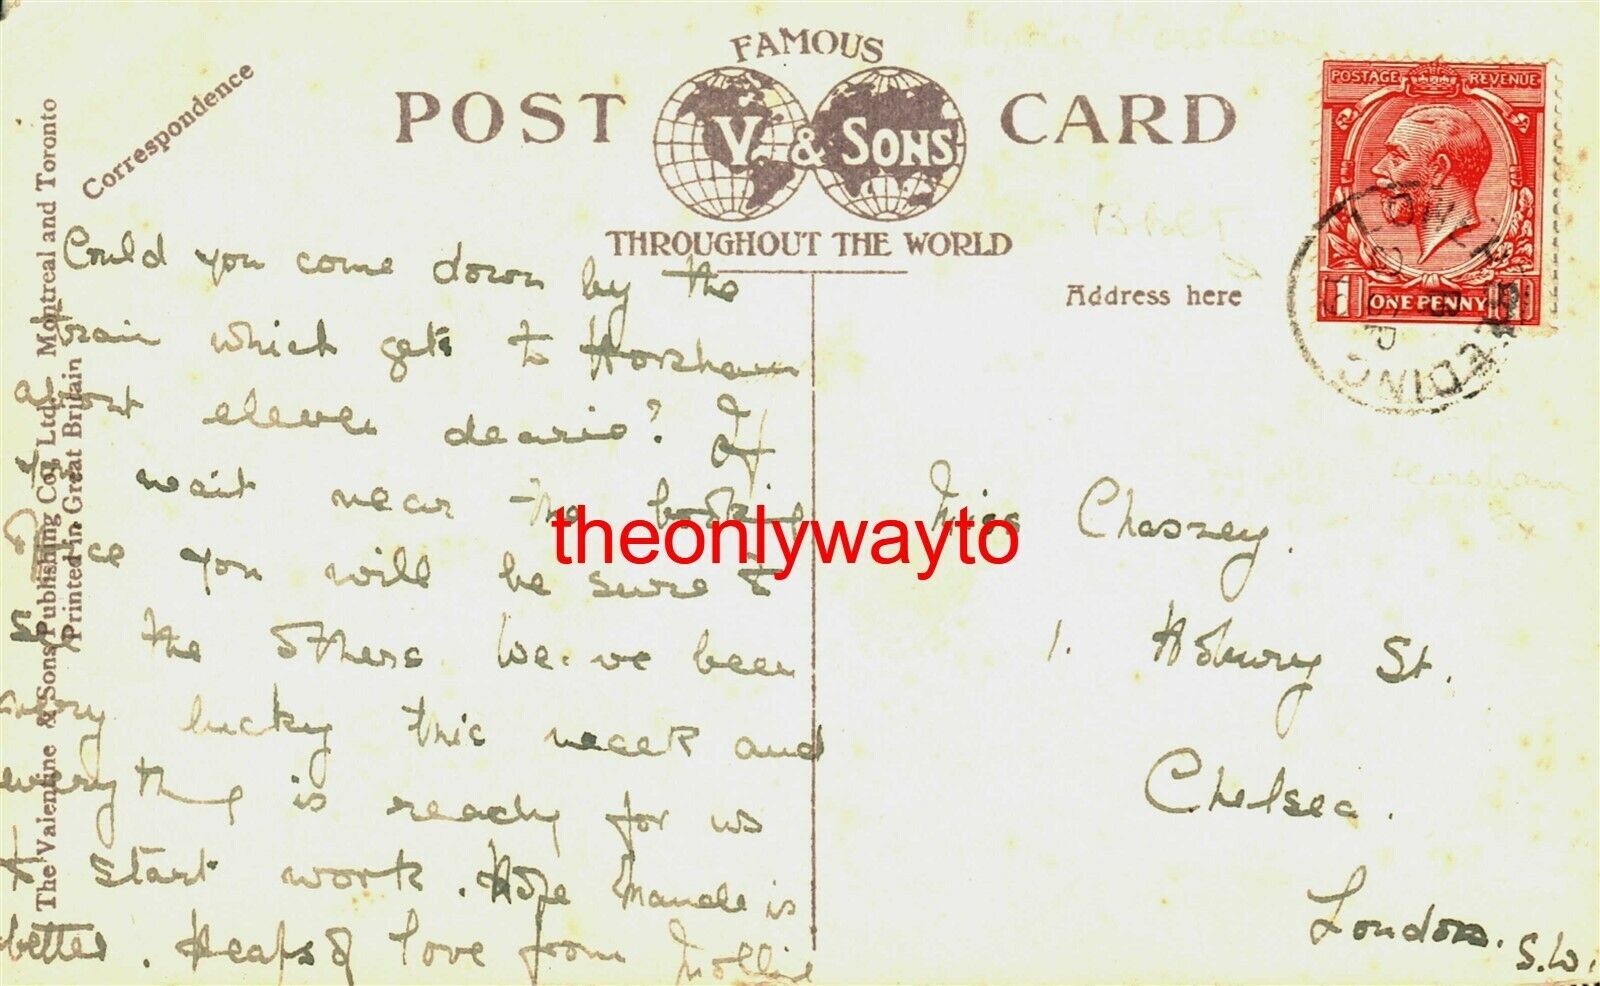 FAMOUS
POST CARD
V. & SONS
THROUGHOUT THE WORLD
Correspondence
Address here
The Valentine & Sons Publishing Co., Ltd. Montreal and Toronto
Printed in Great Britain
POSTAGE REVENUE
ONE PENNY
Could you come down by the
train which gets to Horsham
about eleven dearie? If
you wait near the booking
office you will be sure to
the others. We've been
very lucky this week and
everything is ready for us
to start work. Hope Maude is
better. Heaps of love from Mollie
Miss Chassey.
1. St.
Chelsea.
London. S.W.
theonlywayto